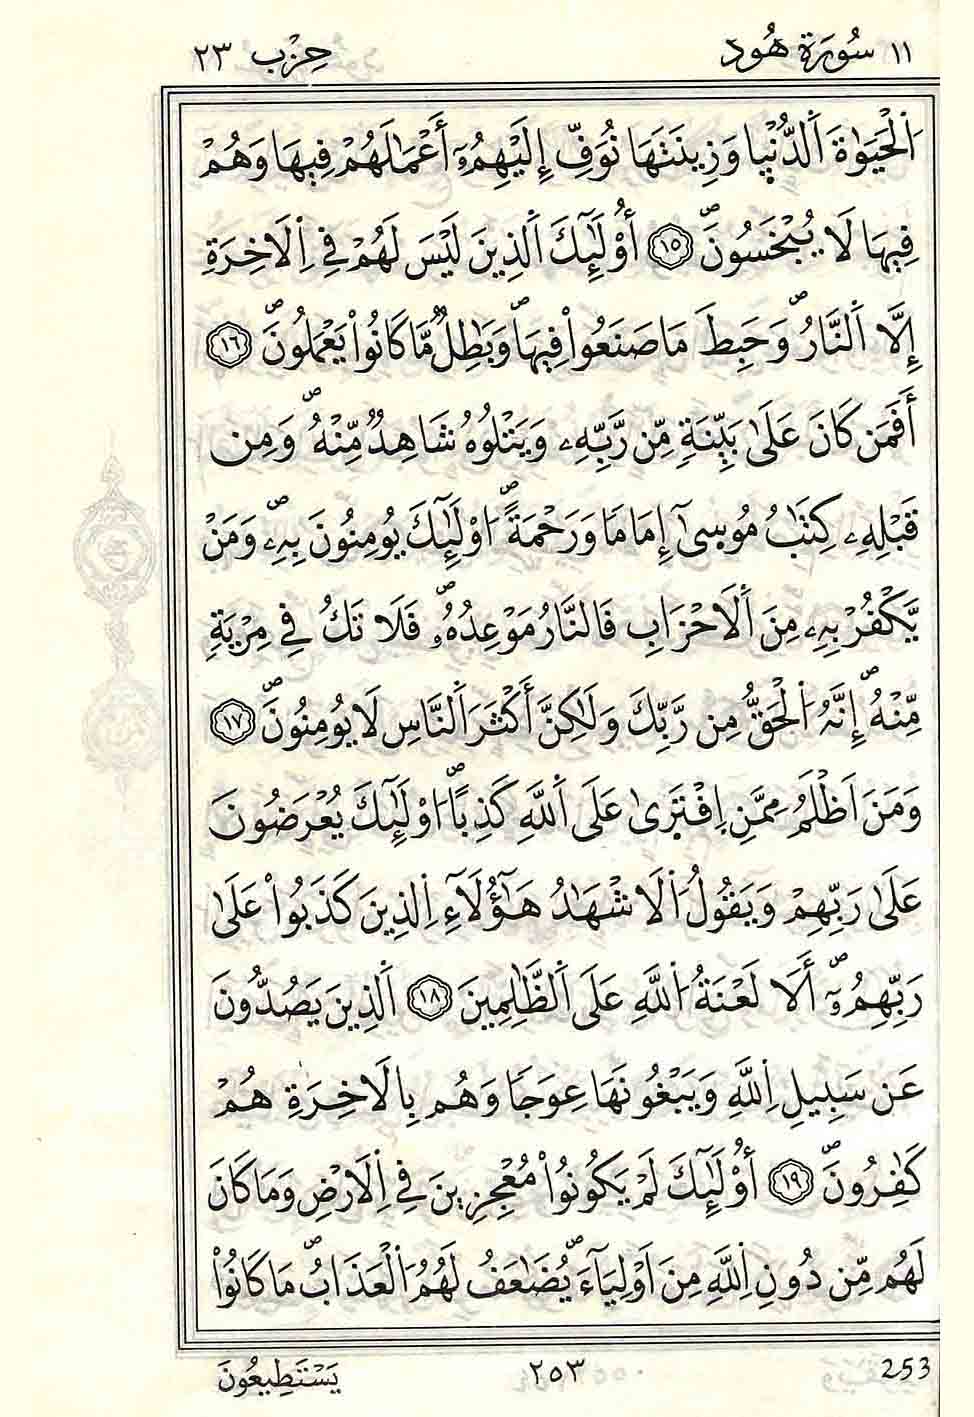 ١١ سُورَة هُود حِزْب ٢٣
اَ۬لْحَيَوٰةَ اَ۬لدُّنْي۪ا وَزِينَتَهَا نُوَفِّ إِلَيْهِمُۥٓ أَعْمَٰلَهُمْ فِيهَا وَهُمْ
فِيهَا لَا يُبْخَسُونَۖ ١٥ أُوْلَٰٓئِكَ اَ۬لذِينَ لَيْسَ لَهُمْ فِے اِ۬لَاخِرَةِ
إِلَّا اَ۬لنَّارُۖ وَحَبِطَ مَا صَنَعُواْ فِيهَاۖ وَبَٰطِلٞ مَّا كَانُواْ يَعْمَلُونَۖ ١٦
أَفَمَن كَانَ عَلَىٰ بَيِّنَةٖ مِّن رَّبِّهِۦ وَيَتْلُوهُ شَاهِدٞ مِّنْهُۖ وَمِن
قَبْلِهِۦ كِتَٰبُ مُوس۪ىٰٓ إِمَاماٗ وَرَحْمَةًۖ ا۟وْلَٰٓئِكَ يُومِنُونَ بِهِۦۖ وَمَنْ
يَّكْفُرْ بِهِۦ مِنَ اَ۬لَاحْزَابِ فَالنَّارُ مَوْعِدُهُۥۖ فَلَا تَكُ فِے مِرْيَةٖ
مِّنْهُۖ إِنَّهُ اُ۬لْحَقُّ مِن رَّبِّكَ وَلَٰكِنَّ أَكْثَرَ اَ۬لنَّاسِ لَا يُومِنُونَۖ ١٧
وَمَنَ اَظْلَمُ مِمَّنِ اِ۪فْتَر۪ىٰ عَلَى اَ۬للَّهِ كَذِباًۖ ا۟وْلَٰٓئِكَ يُعْرَضُونَ
عَلَىٰ رَبِّهِمْ وَيَقُولُ اُ۬لَاشْهَٰدُ هَٰٓؤُلَآءِ اِ۬لذِينَ كَذَبُواْ عَلَىٰ
رَبِّهِمُۥٓۖ أَلَا لَعْنَةُ اُ۬للَّهِ عَلَى اَ۬لظَّٰلِمِينَ ١٨ اَ۬لذِينَ يَصُدُّونَ
عَن سَبِيلِ اِ۬للَّهِ وَيَبْغُونَهَا عِوَجاٗ وَهُم بِالَاخِرَةِ هُمْ
كَٰفِرُونَۖ ١٩ أُوْلَٰٓئِكَ لَمْ يَكُونُواْ مُعْجِزِينَ فِے اِ۬لَارْضِ وَمَا كَانَ
لَهُم مِّن دُونِ اِ۬للَّهِ مِنَ اَوْلِيَآءَۖ يُضَٰعَفُ لَهُمُ اُ۬لْعَذَابُۖ مَا كَانُواْ
يَسْتَطِيعُونَ ٢٥٣ 253